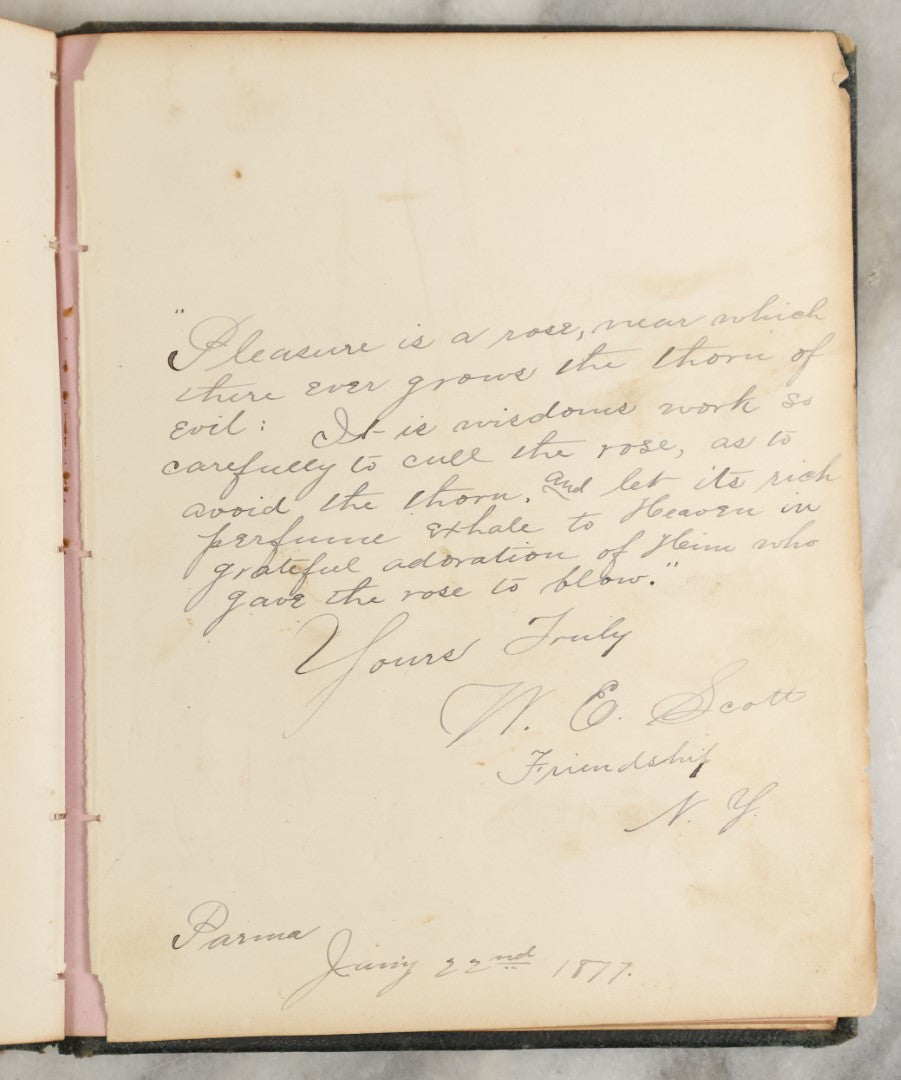 "Pleasure is a rose, near which
there ever grows the thorn of
evil: It is wisdoms work so
carefully to cull the rose, as to
avoid the thorn. and let its rich
perfume exhale to Heaven in
grateful adoration of Him who
gave the rose to blow."
Yours Truly
W. E. Scott
Friendship
N. Y.
Parma
22nd 1877.